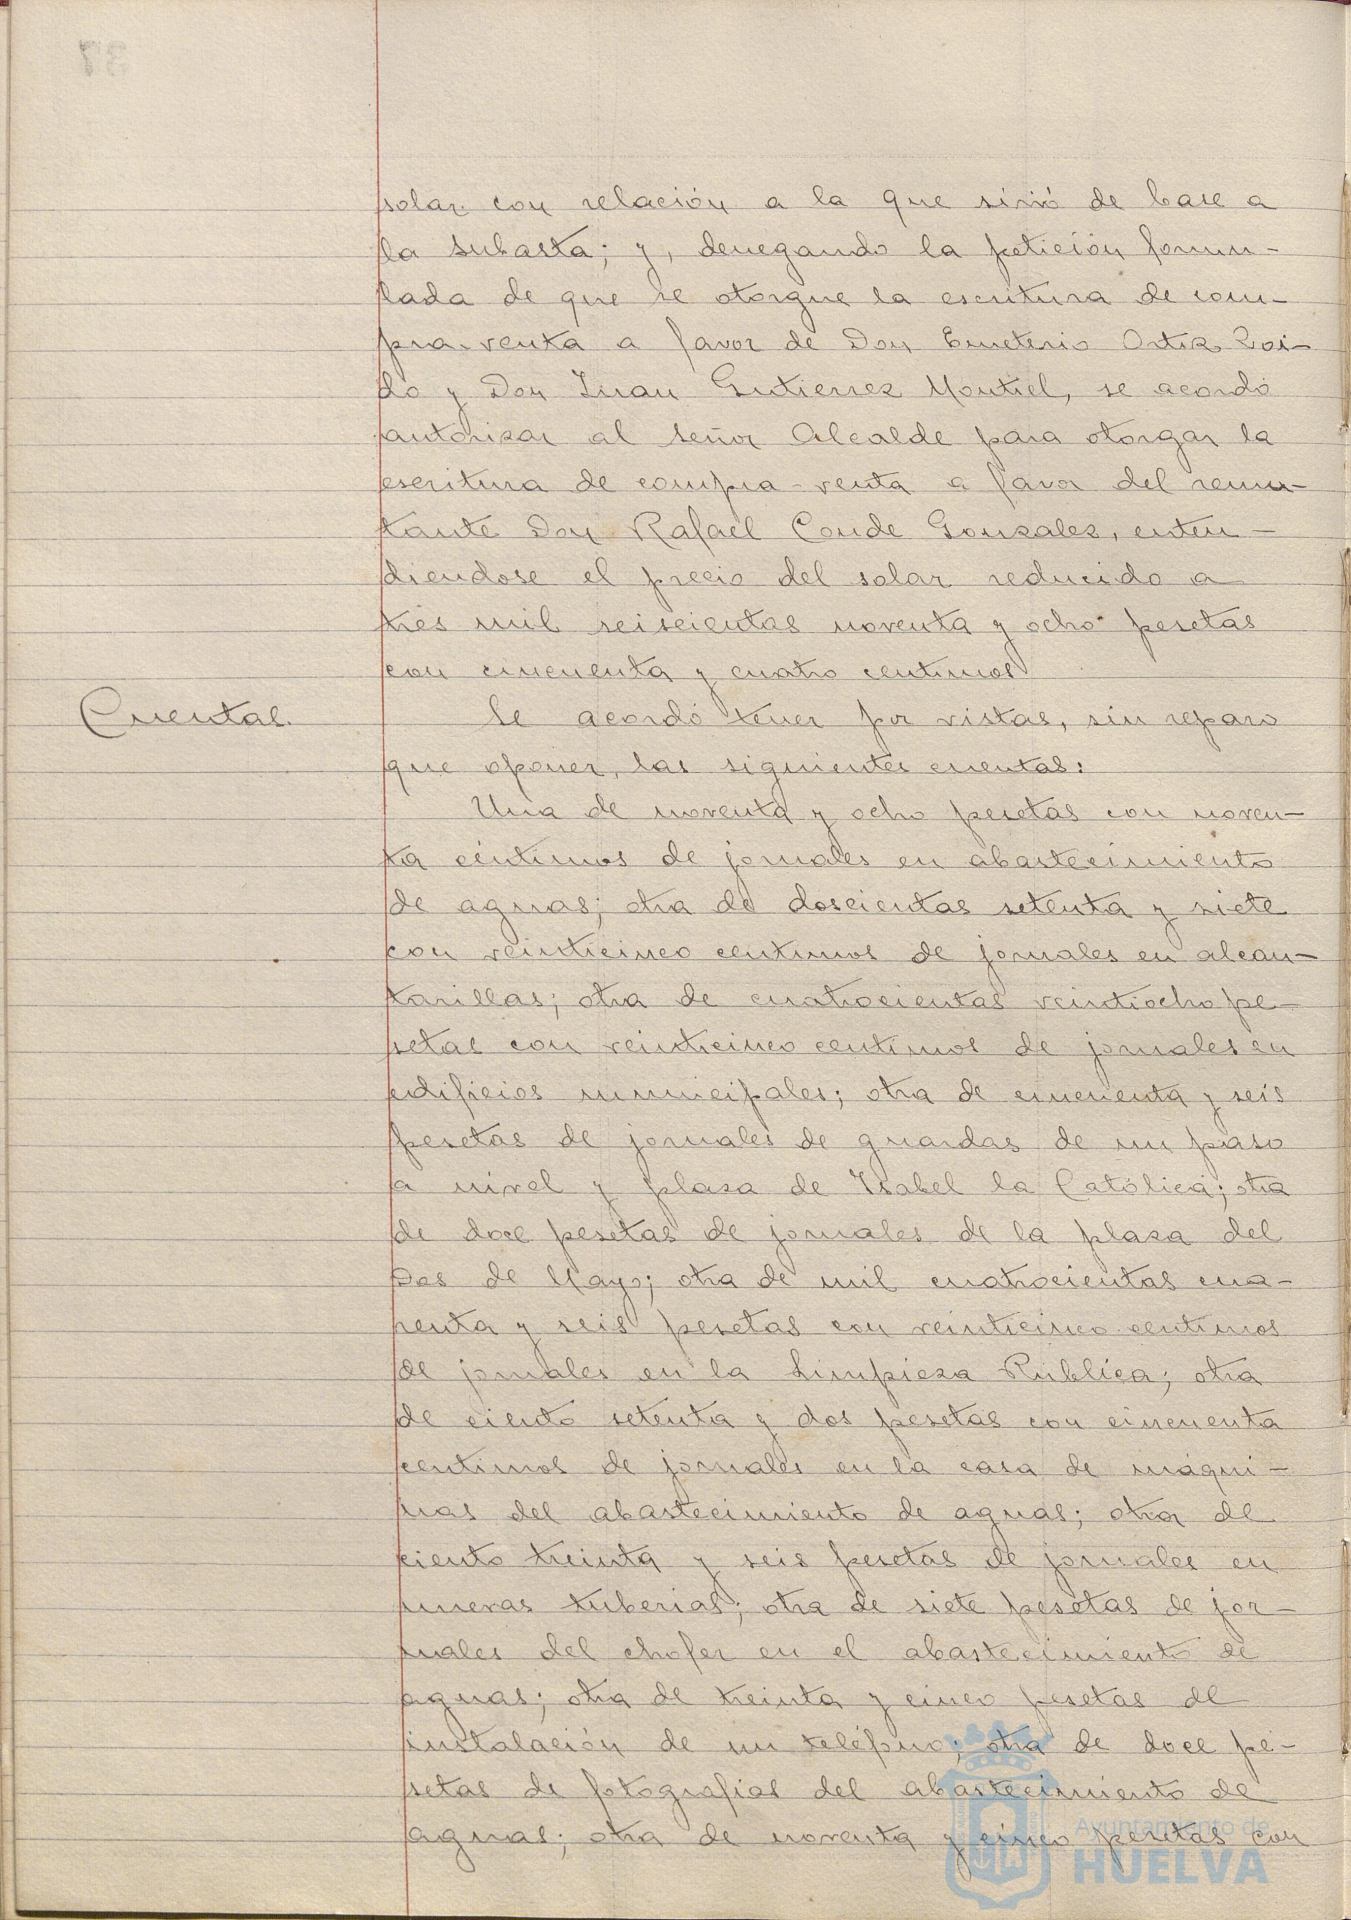 solar con relación a la que sirvió de base a
la subasta; y, denegando la petición formu-
lada de que se otorgue la escritura de com-
pra-venta a favor de Don Emeterio Ortiz Zoi-
do y Don Juan Gutierrez Montiel, se acordó
autorizar al señor Alcalde para otorgar la
escritura de compra-venta a favor del rema-
tante Don Rafael Conde Gonzalez, enten-
diendose el precio del solar reducido a
tres mil seiscientas noventa y ocho pesetas
con cincuenta y cuatro centimos
Cuentas.
Se acordó tener por vistas, sin reparo
que oponer, las siguientes cuentas:
Una de noventa y ocho pesetas con noven-
ta céntimos de jornales en abastecimiento
de aguas; otra de doscientas setenta y siete
con veinticinco centimos de jornales en alcan-
tarillas; otra de cuatrocientas veintiocho pe-
setas con veinticinco centimos de jornales en
edificios municipales; otra de cincuenta y seis
pesetas de jornales de guardas de un paso
a nivel y plaza de Isabel la Católica; otra
de doce pesetas de jornales de la plaza del
Dos de Mayo; otra de mil cuatrocientas cua-
renta y seis pesetas con veinticinco centimos
de jornales en la Limpieza Publica; otra
de ciento setenta y dos pesetas con cincuenta
centimos de jornales en la casa de máqui-
nas del abastecimiento de aguas; otra de
ciento treinta y seis pesetas de jornales en
nuevas tuberias; otra de siete pesetas de jor-
nales del chofer en el abastecimiento de
aguas; otra de treinta y cinco pesetas de
instalación de un teléfono; otra de doce pe-
setas de fotografias del abastecimiento de
aguas; otra de noventa y cinco pesetas con
Ayuntamiento de
HUELVA
37